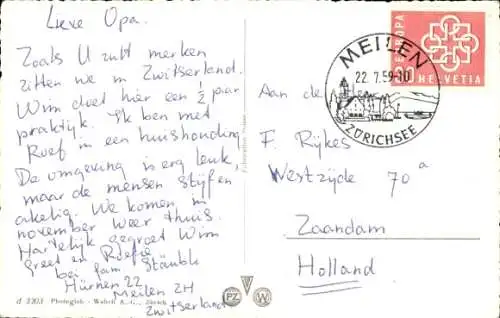 Lieve Opa.
Zoals U zult merken
zitten we in Zwitserland.
Wim doet hier een ½ jaar
praktijk. Ik ben met
Roef in een huishouding
De omgeving is erg leuk,
maar de mensen stijf en
akelig. We komen in
november weer thuis.
Hartelijk gegroet Wim
Greet en Roefie
bei fam. Stäubli
Hürnen 22
Meilen ZH
Zwitserland
d 3303 Photoglob - Wehrli A. G., Zürich
PZ W
EUROPA
HELVETIA
MEILEN
22.7.59-10
ZÜRICHSEE
Aan de
F. Rijkes
Westzijde 70a
Zaandam
Holland